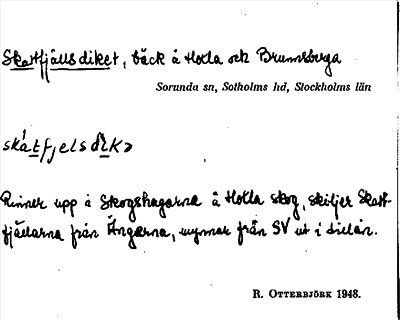 Skattfjällsdiket, bäck å Hoxla och Brunnsberga
Sorunda sn, Sotholms hd, Stockholms län
skátfjelsdìkə
Rinner upp å Skogshagarna å Hoxla skog, skiljer Skatt-
fjällarna från Ängarna, mynnar från SV ut i
R. Otterbjörk 1948.